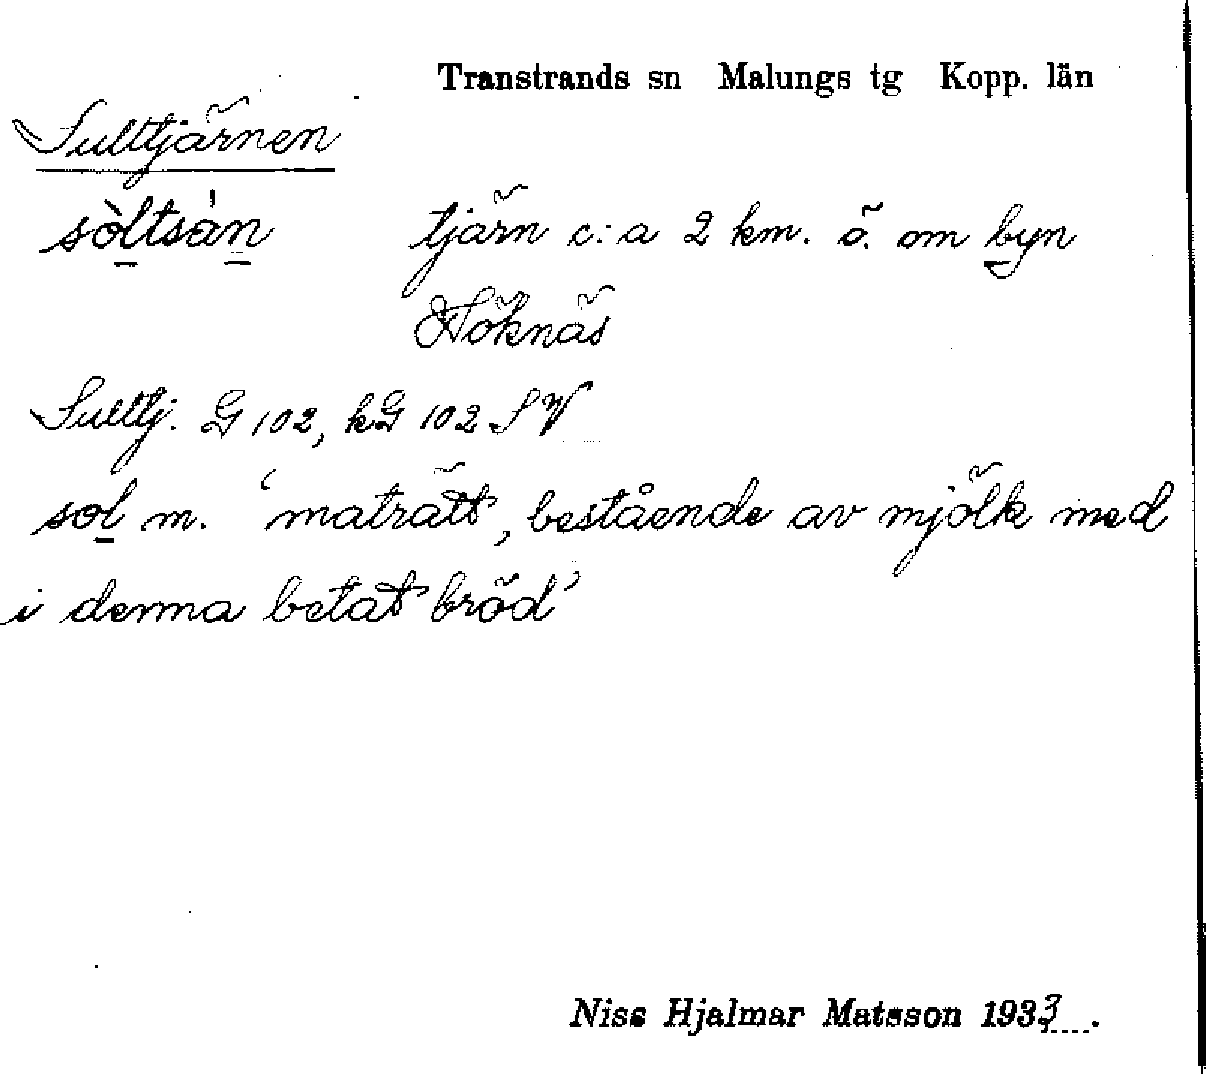 Transtrands sn Malungs tg Kopp. län
Sulttjärnen
sòltsàn tjärn c:a 2 km. ö. om byn
Höknäs
Sulttj. G 102, kG 102 SV
sol m. 'maträtt, bestående av mjölk med
i denna betat bröd'
Niss Hjalmar Matsson 1933.